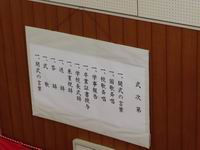 式次第
一、開式の言葉
一、国歌斉唱
一、校歌斉唱
一、学事報告
一、卒業証書授与
一、学校長式辞
一、来賓祝辞
一、送辞
一、答辞
一、式歌
一、閉式の言葉